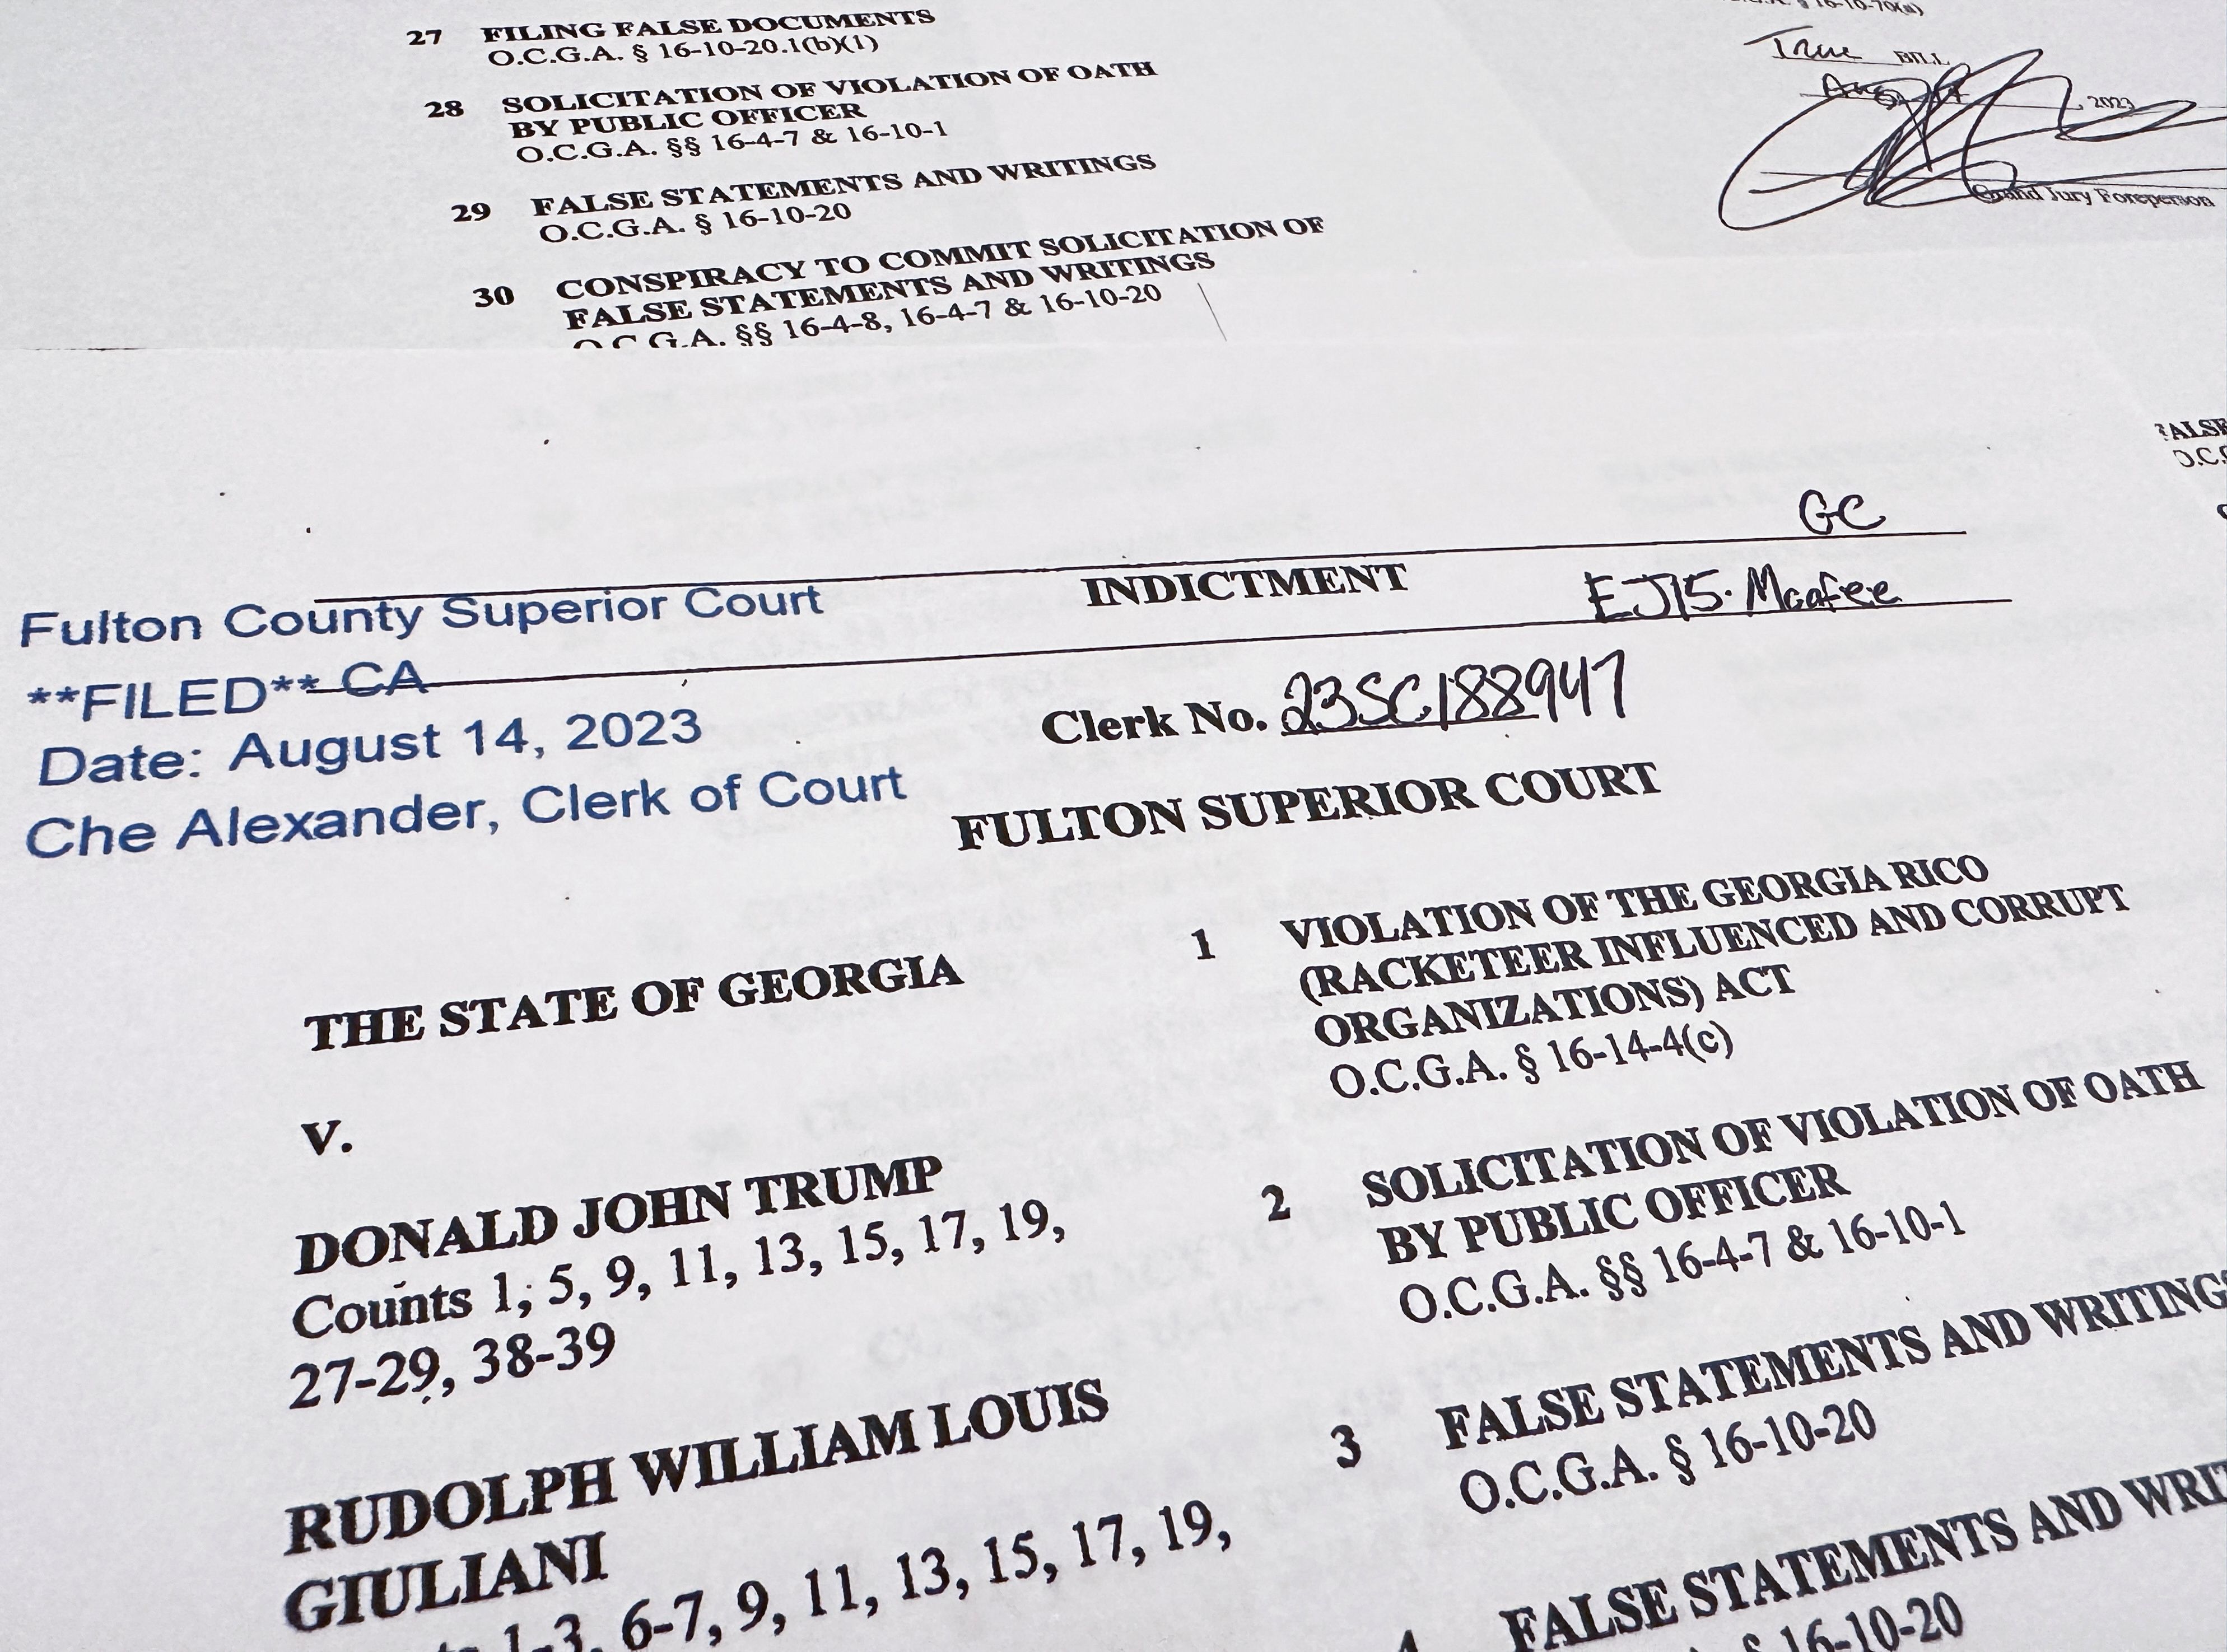 27 FILING FALSE DOCUMENTS
O.C.G.A. § 16-10-20.1(b)(1)
28 SOLICITATION OF VIOLATION OF OATH
BY PUBLIC OFFICER
O.C.G.A. §§ 16-4-7 & 16-10-1
29 FALSE STATEMENTS AND WRITINGS
O.C.G.A. § 16-10-20
30 CONSPIRACY TO COMMIT SOLICITATION OF
FALSE STATEMENTS AND WRITINGS
O.C.G.A. §§ 16-4-8, 16-4-7 & 16-10-20
§ 16-10-70(a)
True BILL
2023
Grand Jury Foreperson
GC
INDICTMENT
EJ15. Mcafee
Fulton County Superior Court
**FILED** CA
Date: August 14, 2023
Che Alexander, Clerk of Court
Clerk No. 23SC188947
FULTON SUPERIOR COURT
THE STATE OF GEORGIA
v.
DONALD JOHN TRUMP
Counts 1, 5, 9, 11, 13, 15, 17, 19,
27-29, 38-39
RUDOLPH WILLIAM LOUIS
GIULIANI
1-3, 6-7, 9, 11, 13, 15, 17, 19,
1 VIOLATION OF THE GEORGIA RICO
(RACKETEER INFLUENCED AND CORRUPT
ORGANIZATIONS) ACT
O.C.G.A. § 16-14-4(c)
2 SOLICITATION OF VIOLATION OF OATH
BY PUBLIC OFFICER
O.C.G.A. §§ 16-4-7 & 16-10-1
3 FALSE STATEMENTS AND WRITINGS
O.C.G.A. § 16-10-20
4 FALSE STATEMENTS AND WRIT
§ 16-10-20